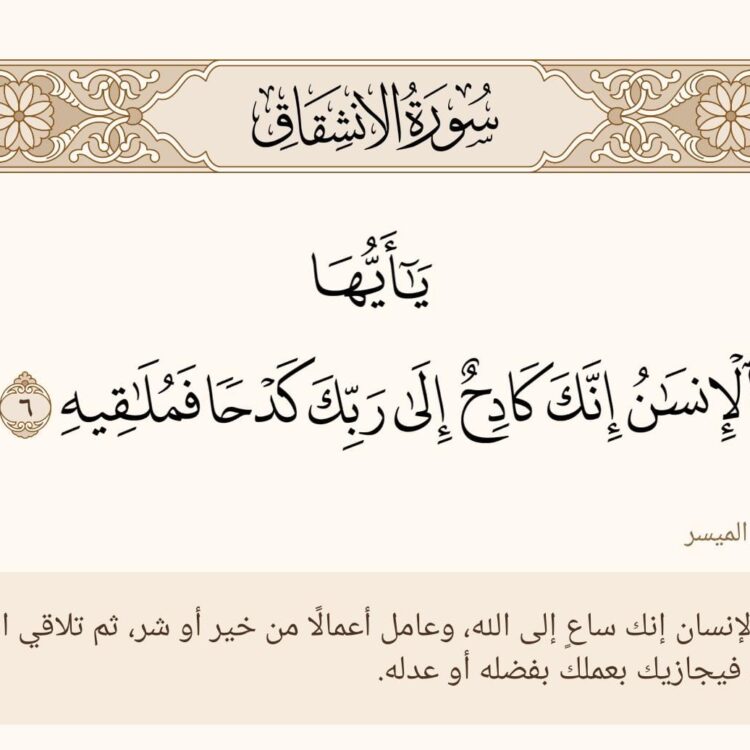 سُورَةُ الانشِقَاقِ
يَـٰٓأَيُّهَا
ٱلْإِنسَـٰنُ إِنَّكَ كَادِحٌ إِلَىٰ رَبِّكَ كَدْحًا فَمُلَـٰقِيهِ ٦
الميسر
لإنسان إنك ساعٍ إلى الله، وعامل أعمالًا من خير أو شر، ثم تلاقي ا
فيجازيك بعملك بفضله أو عدله.